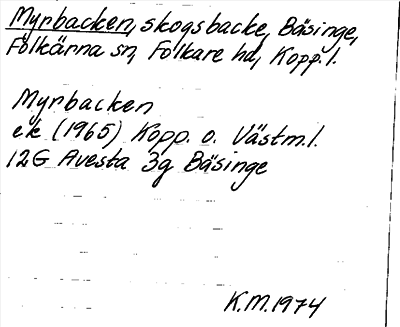 Myrbacken, skogsbacke, Bäsinge,
Folkärna sn, Folkare hd, Kopp. l.
Myrbacken
ek (1965) Kopp. o. Västm. l.
12G Avesta 3g Bäsinge
K.M. 1974